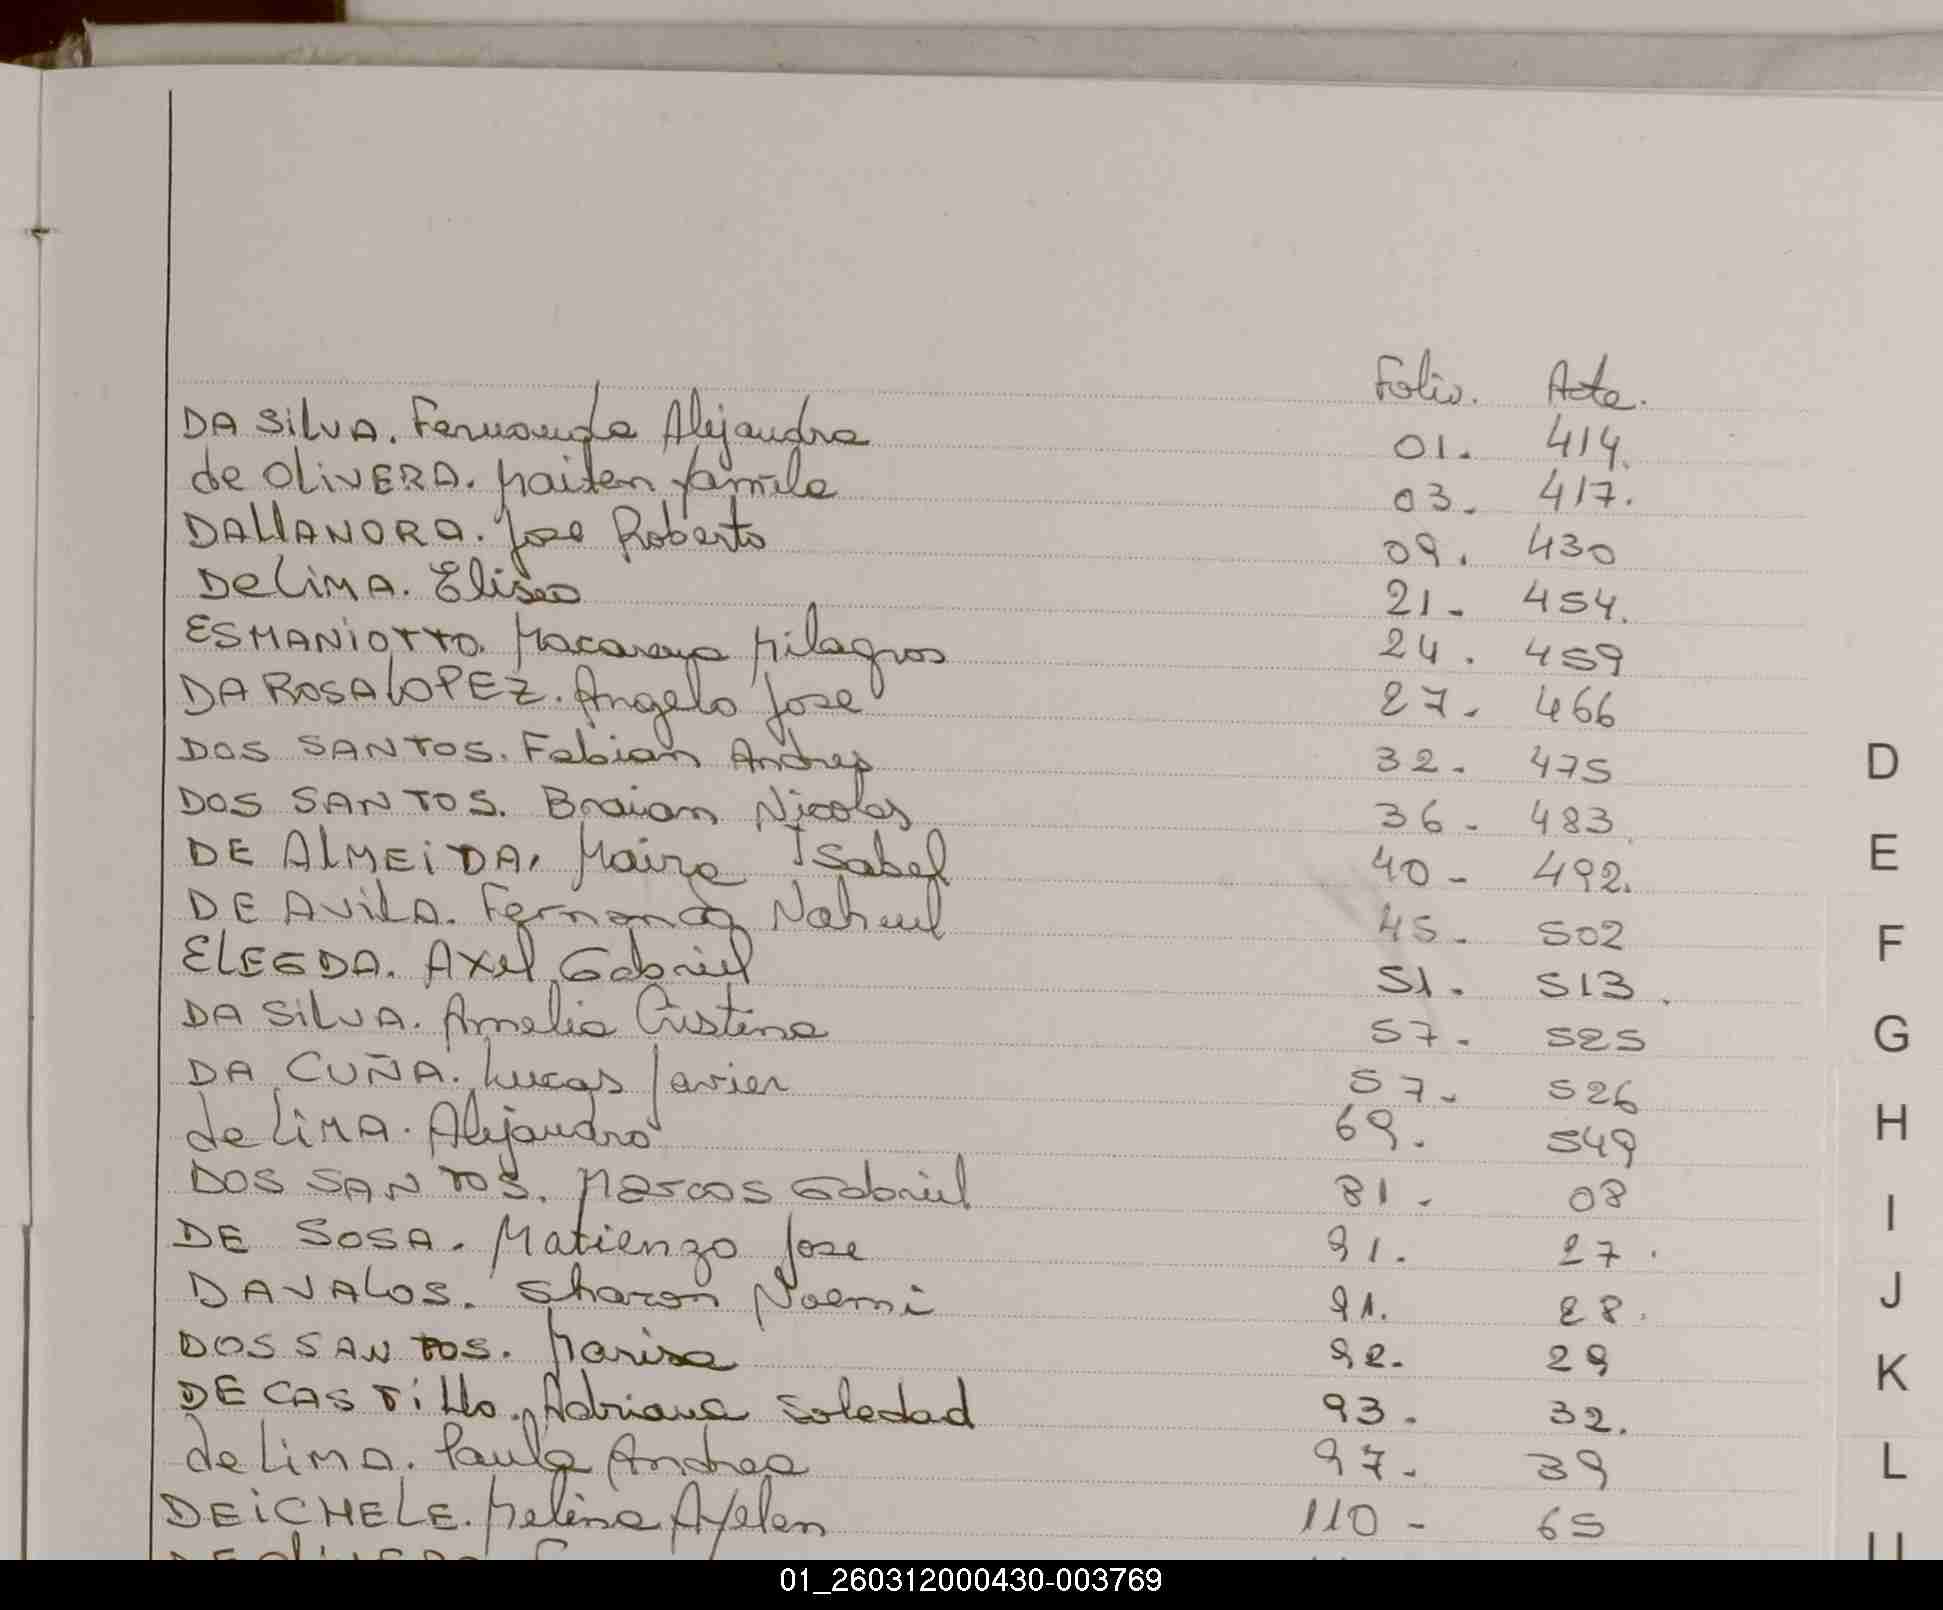 Folio. Acta.
DA SILVA. Fernanda Alejandra 01. 414.
de OLIVERA. Maiten Yamila 03. 417.
DALLANORA. Jose Roberto 09. 430
DeLIMA. Eliseo 21. 454.
ESMANIOTTO. Macarena Milagros 24. 459
DA ROSA LOPEZ. Angelo Jose 27. 466
DOS SANTOS. Fabian Andres 32. 475
DOS SANTOS. Braian Nicolas 36. 483
DE ALMEIDA. Maira Isabel 40 - 492.
DE AVILA. Nahuel 45. 502
ELEGDA. Axel Gabriel 51. 513
DA SILVA. Amelia Cristina 57. 525
DA CUÑA. Lucas Javier 57. 526
de LIMA. Alejandro 69. 549
DOS SANTOS. Marcos Gabriel 81. 08
DE SOSA. Matienzo Jose 91. 27
DAVALOS. Sharon Noemi 91. 28.
DOS SANTOS. Marisa 92. 29
DE CASTILLO. Adriana Soledad 93. 32.
de LIMA. Paula Andrea 97. 39
DEICHELE. Melina Ayelen 110 - 65
D
E
F
G
H
I
J
K
L
01_260312000430-003769